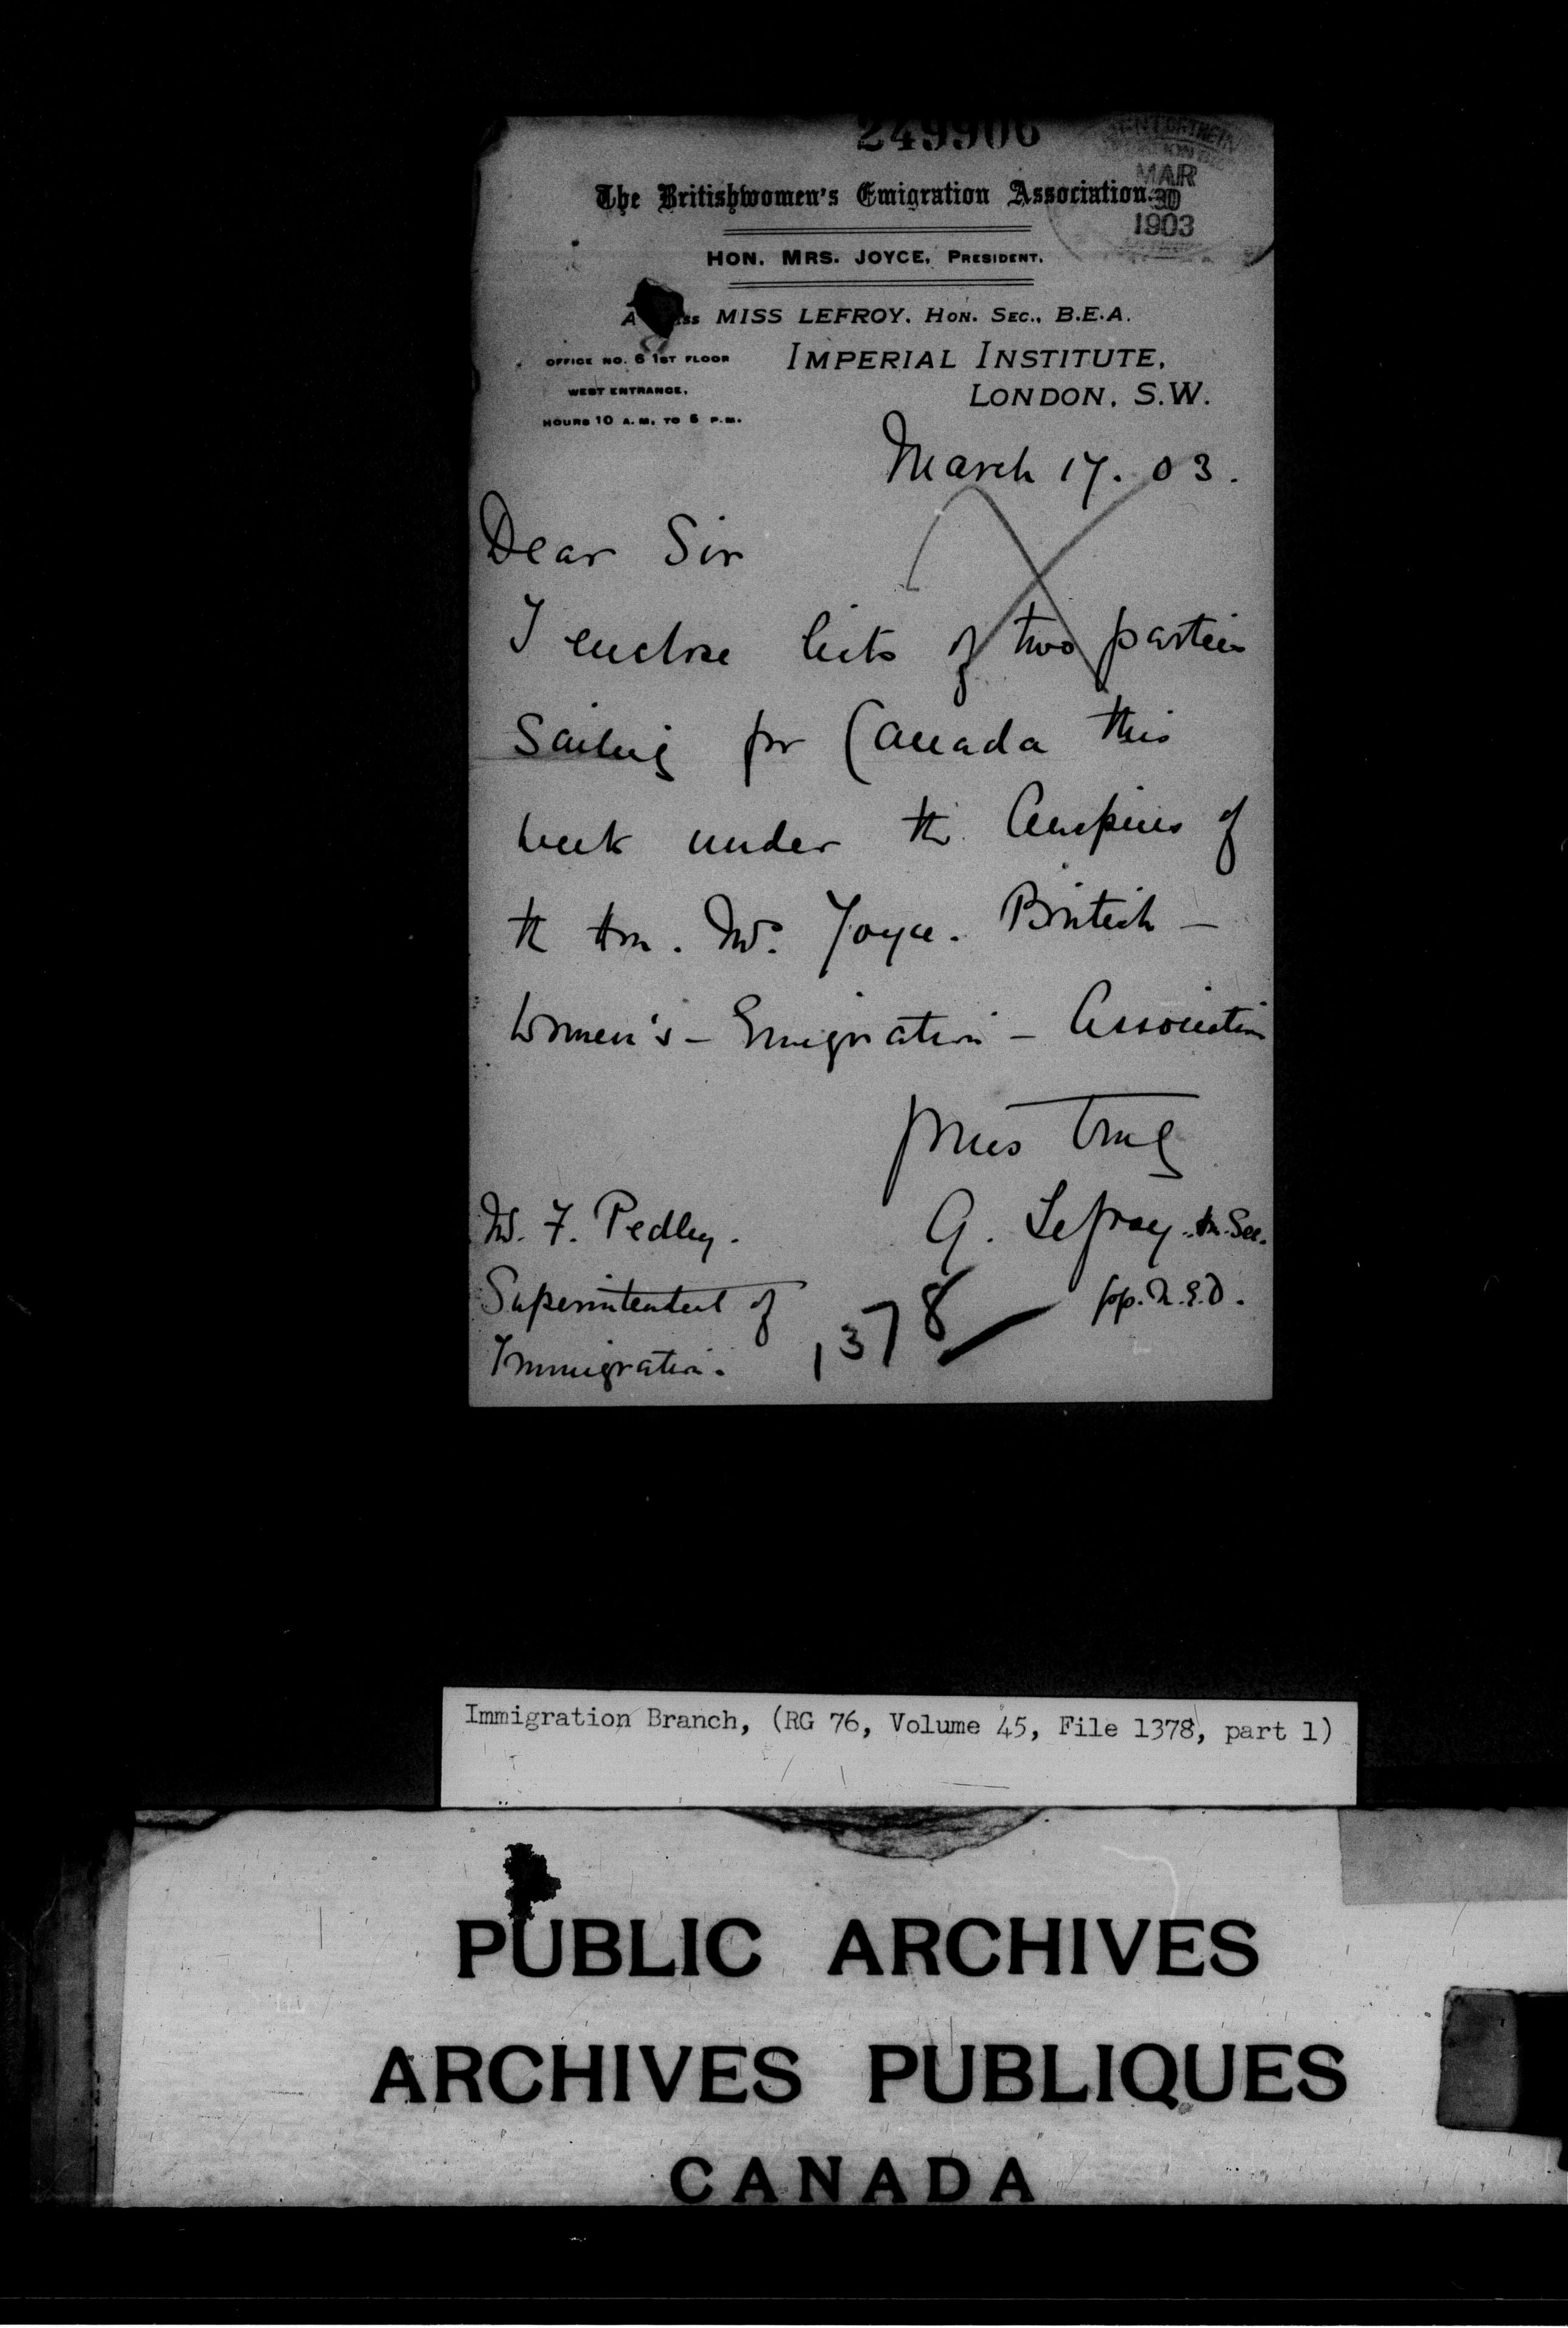 249906
MAR
30
1903
The Britishwomen's Emigration Association.
HON. MRS. JOYCE, PRESIDENT.
MISS LEFROY, HON. SEC., B.E.A.
OFFICE NO. 6 1ST FLOOR
WEST ENTRANCE,
HOURS 10 A.M. TO 5 P.M.
IMPERIAL INSTITUTE,
LONDON, S.W.
March 17. 03.
Dear Sir
I enclose lists of two parties
Sailing for Canada this
week under the Auspices of
the Hon. Mrs. Joyce. British -
Women's - Emigration - Association
yours truly
G. Lefroy. Hn. Sec.
pp. N.E.D.
Mr. F. Pedley.
Superintendent of
Immigration.
1378
Immigration Branch, (RG 76, Volume 45, File 1378, part 1)
PUBLIC ARCHIVES
ARCHIVES PUBLIQUES
CANADA